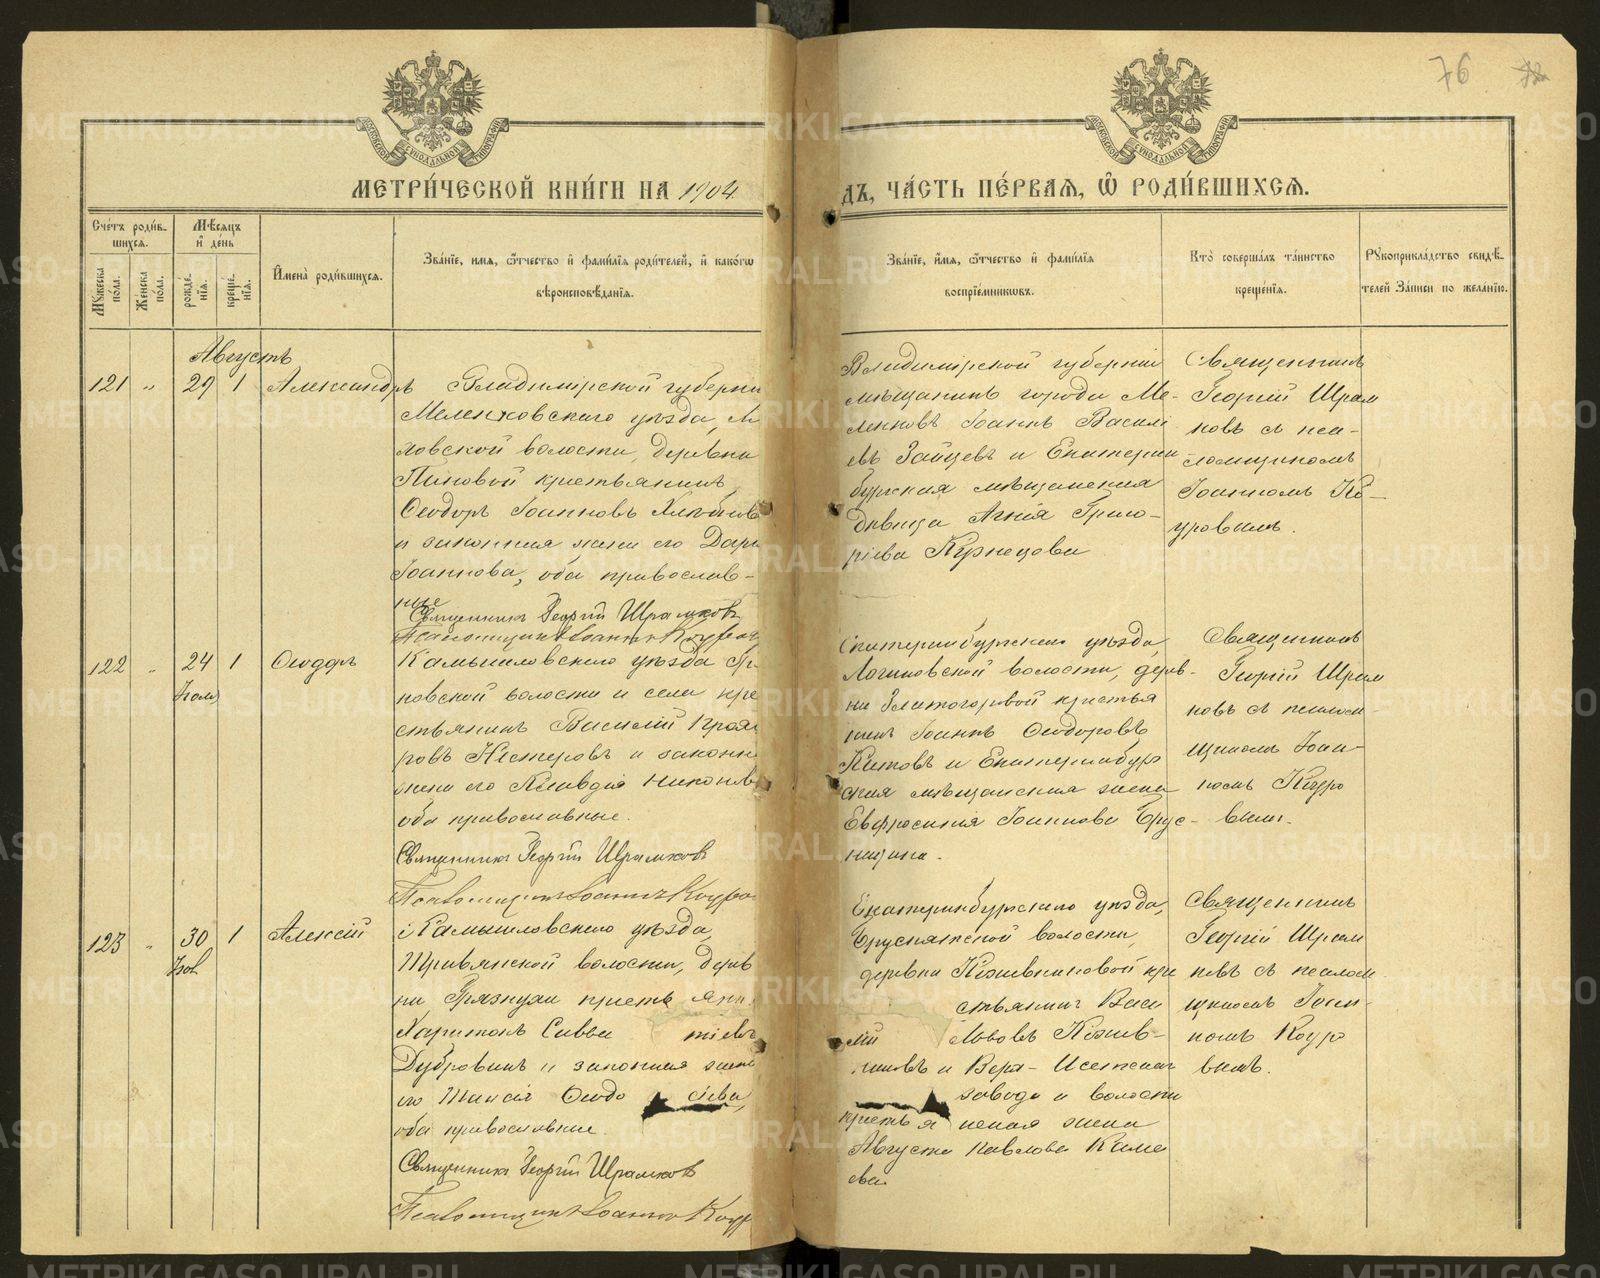 76
МЕТРИ́ЧЕСКОЙ КНИ́ГИ НА 1904
ДЪ, ЧА́СТЬ ПЕ́РВАЯ, Ѡ РОДИ́ВШИХСЯ.
Сче́тъ роди́в-
шихся.
Мѣ́сяцъ
и де́нь
Му́жеска по́ла.
Же́нска по́ла.
рожде́-
нія.
креще́-
нія.
Имена̀ роди́вшихся.
Зва́ніе, имя, ѻ҆́тчество и фами́лія роди́телей, и како́гѡ
вѣроисповѣ́данія.
Зва́ніе, и́мя, ѻ҆́тчество и фами́лія
воспріе́мниковъ.
Кто̀ соверша́лъ та́инство
креще́нія.
Рукоприкла́дство свидѣ́-
телей за́писи по жела́нію.
Августъ
121 " 29 1 Александръ
Владимірской губерни
Меленковскаго уѣзда,
ловской волости, деревни
Пановой крестьянинъ
Ѳеодоръ Іоанновъ
и законная жена его Дарь
Іоаннова, оба православ-
ные
Священникъ Георгій Шрамковъ
Псаломщикъ Іоаннъ Кауров
Владимірской губерніи
мѣщанинъ города Ме-
ленковъ Іоаннъ Васил
евъ Зайцевъ и Екатерин
бургская мѣщанская
дѣвица Агнія Григо-
ріева Кузнецова
Священникъ
Георгій Шрам
ковъ съ пса-
ломщикомъ
Іоанномъ Ка-
уровымъ.
122 " 24 1 Ѳеодоръ
Камышловскаго уѣзда
новской волости и села кре
стьянинъ Василій
ровъ Нестеровъ и законн
жена его Клавдія Никонов
оба православные.
Священникъ Георгій Шрамков
Псаломщикъ Іоаннъ Кауров
Екатеринбургскаго уѣзда,
Логиновской волости, дерев-
ни Златогоровой крестья
нинъ Іоаннъ Ѳеодоровъ
Китовъ и Екатеринбург
ская мѣщанская жена
Евфросинія Іоаннова Брус-
ницина.
Священникъ
Георгій Шрам
ковъ съ псалом-
щикомъ Іоан-
номъ Кауро
вымъ.
123 " 30 1 Алексій
Камышловскаго уѣзда,
Травянской волости, дерев
ни Грязнухи крестьянин
Харитонъ Савва тіевъ
Дубровинъ и законная жена
его Таисія Ѳеодо сіева,
оба православные.
Священникъ Георгій Шрамков
Псаломщикъ Іоаннъ Кауров
Екатеринбургскаго уѣзда,
Бруснятской волости,
деревни Кожевниковой кре
стьянинъ Васи
лій Львовъ Кожев-
никовъ и Верх-Исетскаг
завода и волости
крестьянская жена
Августа Павлова Кама
ева.
Священникъ
Георгій Шрам
ковъ съ псалом
щикомъ Іоан-
номъ Кауро
вымъ.
METRIKI.GASO-URAL.RU